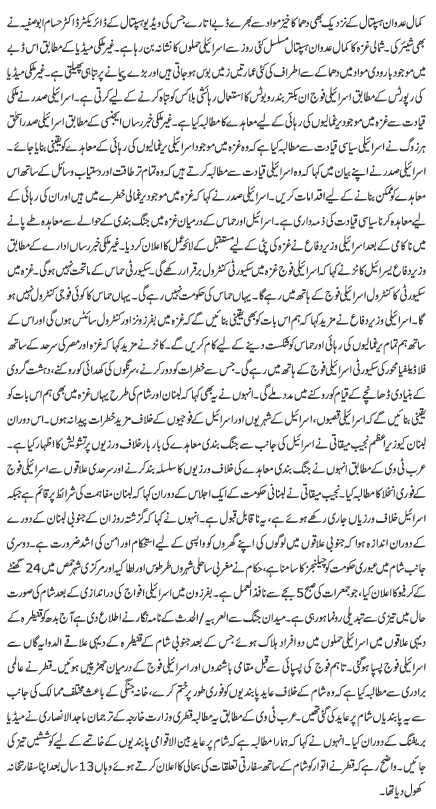 کمال عدوان ہسپتال کے نزدیک بھی دھماکا خیز مواد سے بھرے ڈبے اتارے جس کی ویڈیو ہسپتال کے ڈائریکٹر ڈاکٹر حسام ابو صفیہ نے
بھی شیئر کی۔ شمالی غزہ کا کمال عدوان ہسپتال مسلسل کئی روز سے اسرائیلی حملوں کا نشانہ بن رہا ہے۔ غیر ملکی میڈیا کے مطابق اس ڈبے
میں موجود بارودی مواد میں دھماکے سے اطراف کی کئی عمارتیں زمیں بوس ہو جاتی ہیں اور بڑے پیمانے پر تباہی پھیلتی ہے۔ غیر ملکی میڈیا
کی رپورٹس کے مطابق اسرائیلی فوج ان بکتر بند روبوٹس کا استعمال رہائشی بلاکس کو تباہ کرنے کے لیے کرتی ہے۔ اسرائیلی صدر نے ملکی
قیادت سے غزہ میں موجود یرغمالیوں کی رہائی کے لیے معاہدے کا مطالبہ کیا ہے۔ غیر ملکی خبر رساں ایجنسی کے مطابق اسرائیلی صدر اسحٰق
ہرزوگ نے اسرائیلی سیاسی قیادت سے مطالبہ کیا ہے کہ وہ غزہ میں موجود اسرائیلی یرغمالیوں کی رہائی کے معاہدے کو یقینی بنایا جائے۔
اسرائیلی صدر نے اپنے بیان میں کہا کہ وہ اسرائیلی قیادت سے مطالبہ کرتے ہیں کہ وہ تمام تر طاقت اور دستیاب وسائل کے ساتھ اس
معاہدے کو ممکن بنانے کے لیے اقدامات کریں۔ اسرائیلی صدر نے کہا کہ غزہ میں موجود یرغمالی خطرے میں ہیں اور ان کی رہائی کے
لیے معاہدہ کرنا سیاسی قیادت کی ذمہ داری ہے۔ اسرائیل اور حماس کے درمیان غزہ میں جنگ بندی کے حوالے سے معاہدہ طے پانے
میں ناکامی کے بعد اسرائیلی وزیر دفاع نے غزہ کی پٹی کے لیے مستقبل کے لائحہ عمل کا اعلان کر دیا۔ غیر ملکی خبر رساں ادارے کے مطابق
وزیر دفاع یسرائیل کاٹز نے کہا کہ اسرائیلی فوج غزہ میں سکیورٹی کنٹرول برقرار رکھے گی۔ سکیورٹی حماس کے ماتحت نہیں ہو گی۔ غزہ میں
سکیورٹی کا کنٹرول اسرائیلی فوج کے ہاتھ میں رہے گا۔ یہاں حماس کی حکومت نہیں رہے گی۔ یہاں حماس کا کوئی فوجی کنٹرول نہیں ہو
گا۔ اسرائیلی وزیر دفاع نے مزید کہا کہ ہم اس بات کو بھی یقینی بنائیں گے کہ غزہ میں بفر زونز اور کنٹرول سائٹس ہوں گی اور اس کے
ساتھ ہم تمام یرغمالیوں کی رہائی اور حماس کو شکست دینے کے لیے کام کریں گے۔ کاٹز نے مزید کہا کہ غزہ اور مصر کی سرحد کے ساتھ
فلاڈیلفیا محور کی سکیورٹی اسرائیلی فوج کے ہاتھ میں رہے گی۔ جس سے خطرات کو دور کرنے، سرنگوں کی کھدائی کو روکنے، دہشت گردی
کے بنیادی ڈھانچے کے قیام کو روکنے میں مدد ملے گی۔ انہوں نے مزید کہا کہ لبنان اور شام کی طرح یہاں غزہ میں بھی ہم اس بات کو
یقینی بنائیں گے کہ اسرائیلی قصبوں، اسرائیل کے شہریوں اور اسرائیل کے فوجیوں کے خلاف مزید خطرات پیدا نہ ہوں۔ اس دوران
لبنان کے وزیراعظم نجیب میقاتی نے اسرائیل کی جانب سے جنگ بندی معاہدے کی بار بار خلاف ورزیوں پر تشویش کا اظہار کیا ہے۔
عرب ٹی وی کے مطابق انہوں نے جنگ بندی معاہدے کی خلاف ورزیوں کا سلسلہ بند کرنے اور سرحدی علاقوں سے اسرائیلی فوج
کے فوری انخلا کا مطالبہ کیا۔ نجیب میقاتی نے لبنانی حکومت کے ایک اجلاس کے دوران کہا کہ لبنان مفاہمت کی شرائط پر قائم ہے جبکہ
اسرائیل خلاف ورزیاں جاری رکھے ہوئے ہے، یہ ناقابل قبول ہے۔ انہوں نے کہا کہ گزشتہ روز ان کے جنوبی لبنان کے دورے
کے دوران اندازہ ہوا کہ جنوبی علاقوں میں لوگوں کی اپنے گھروں کو واپسی کے لیے استحکام اور امن کی اشد ضرورت ہے۔ دوسری
جانب شام میں عبوری حکومت کو چیلنجز کا سامنا ہے، حکام نے مغربی ساحلی شہروں طرطوس اور لطاکیہ اور مرکزی شہر حمص میں 24 گھنٹے
کے کرفیو کا اعلان کیا، جو جمعرات کی صبح 5 بجے سے نافذ العمل ہے۔ بفر زون میں اسرائیلی افواج کی دراندازی کے بعد شام کی صورت
حال میں تیزی سے تبدیلی رونما ہو رہی ہے۔ میدان جنگ سے العربیہ/الحدث کے نامہ نگار نے اطلاع دی ہے آج بدھ کو قنیطرہ کے
دیہی علاقوں میں اسرائیلی حملوں میں دو افراد ہلاک ہوئے جس کے بعد جنوبی شام کے قنیطرہ کے دیہی علاقے الدوایہ گاں سے
اسرائیلی فوج پسپا ہو گئی۔ تاہم فوج کی پسپائی سے قبل مقامی باشندوں اور اسرائیلی فوج کے درمیان جھڑپیں ہوئیں۔ قطر نے عالمی
برادری سے مطالبہ کیا ہے کہ وہ شام کے خلاف عاید پابندیوں کو فوری طور پر ختم کرے، خانہ جنگی کے باعث مختلف ممالک کی جانب
سے یہ پابندیاں شام پر عاید کی گئی تھیں۔ عرب ٹی وی کے مطابق یہ مطالبہ قطری وزارت خارجہ کے ترجمان ماجد الانصاری نے میڈیا
بریفنگ کے دوران کیا۔ انہوں نے کہا کہ ہمارا مطالبہ ہے کہ شام پر عاید بین الاقوامی پابندیوں کے خاتمے کے لیے کوششیں تیز کی
جائیں۔ واضح رہے کہ قطر نے اتوار کو شام کے ساتھ سفارتی تعلقات کی بحالی کا اعلان کرتے ہوئے وہاں 13 سال بعد اپنا سفارتخانہ
کھول دیا تھا۔